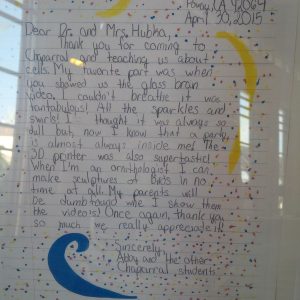 Poway, CA 92064
April 30, 2015
Dear Dr. and Mrs. Hubka,
Thank you for coming to
Chaparral and teaching us about
cells. My favorite part was when
you showed us the glass bran
video. I couldn't breathe it was
fantabulous! All the sparkles and
swirls! I thought it was always so
dull but, now I know that a party
is almost always inside me! The
3D printer was also superfastic!
When I'm an ornithologist I can
make sculptures of birds in no
time at all. My parents will
be dumbfound whe I show them
the videos! Once again, thank you
so much we really appreciate it.
Sincerely,
Abby and the other
Chaparral students